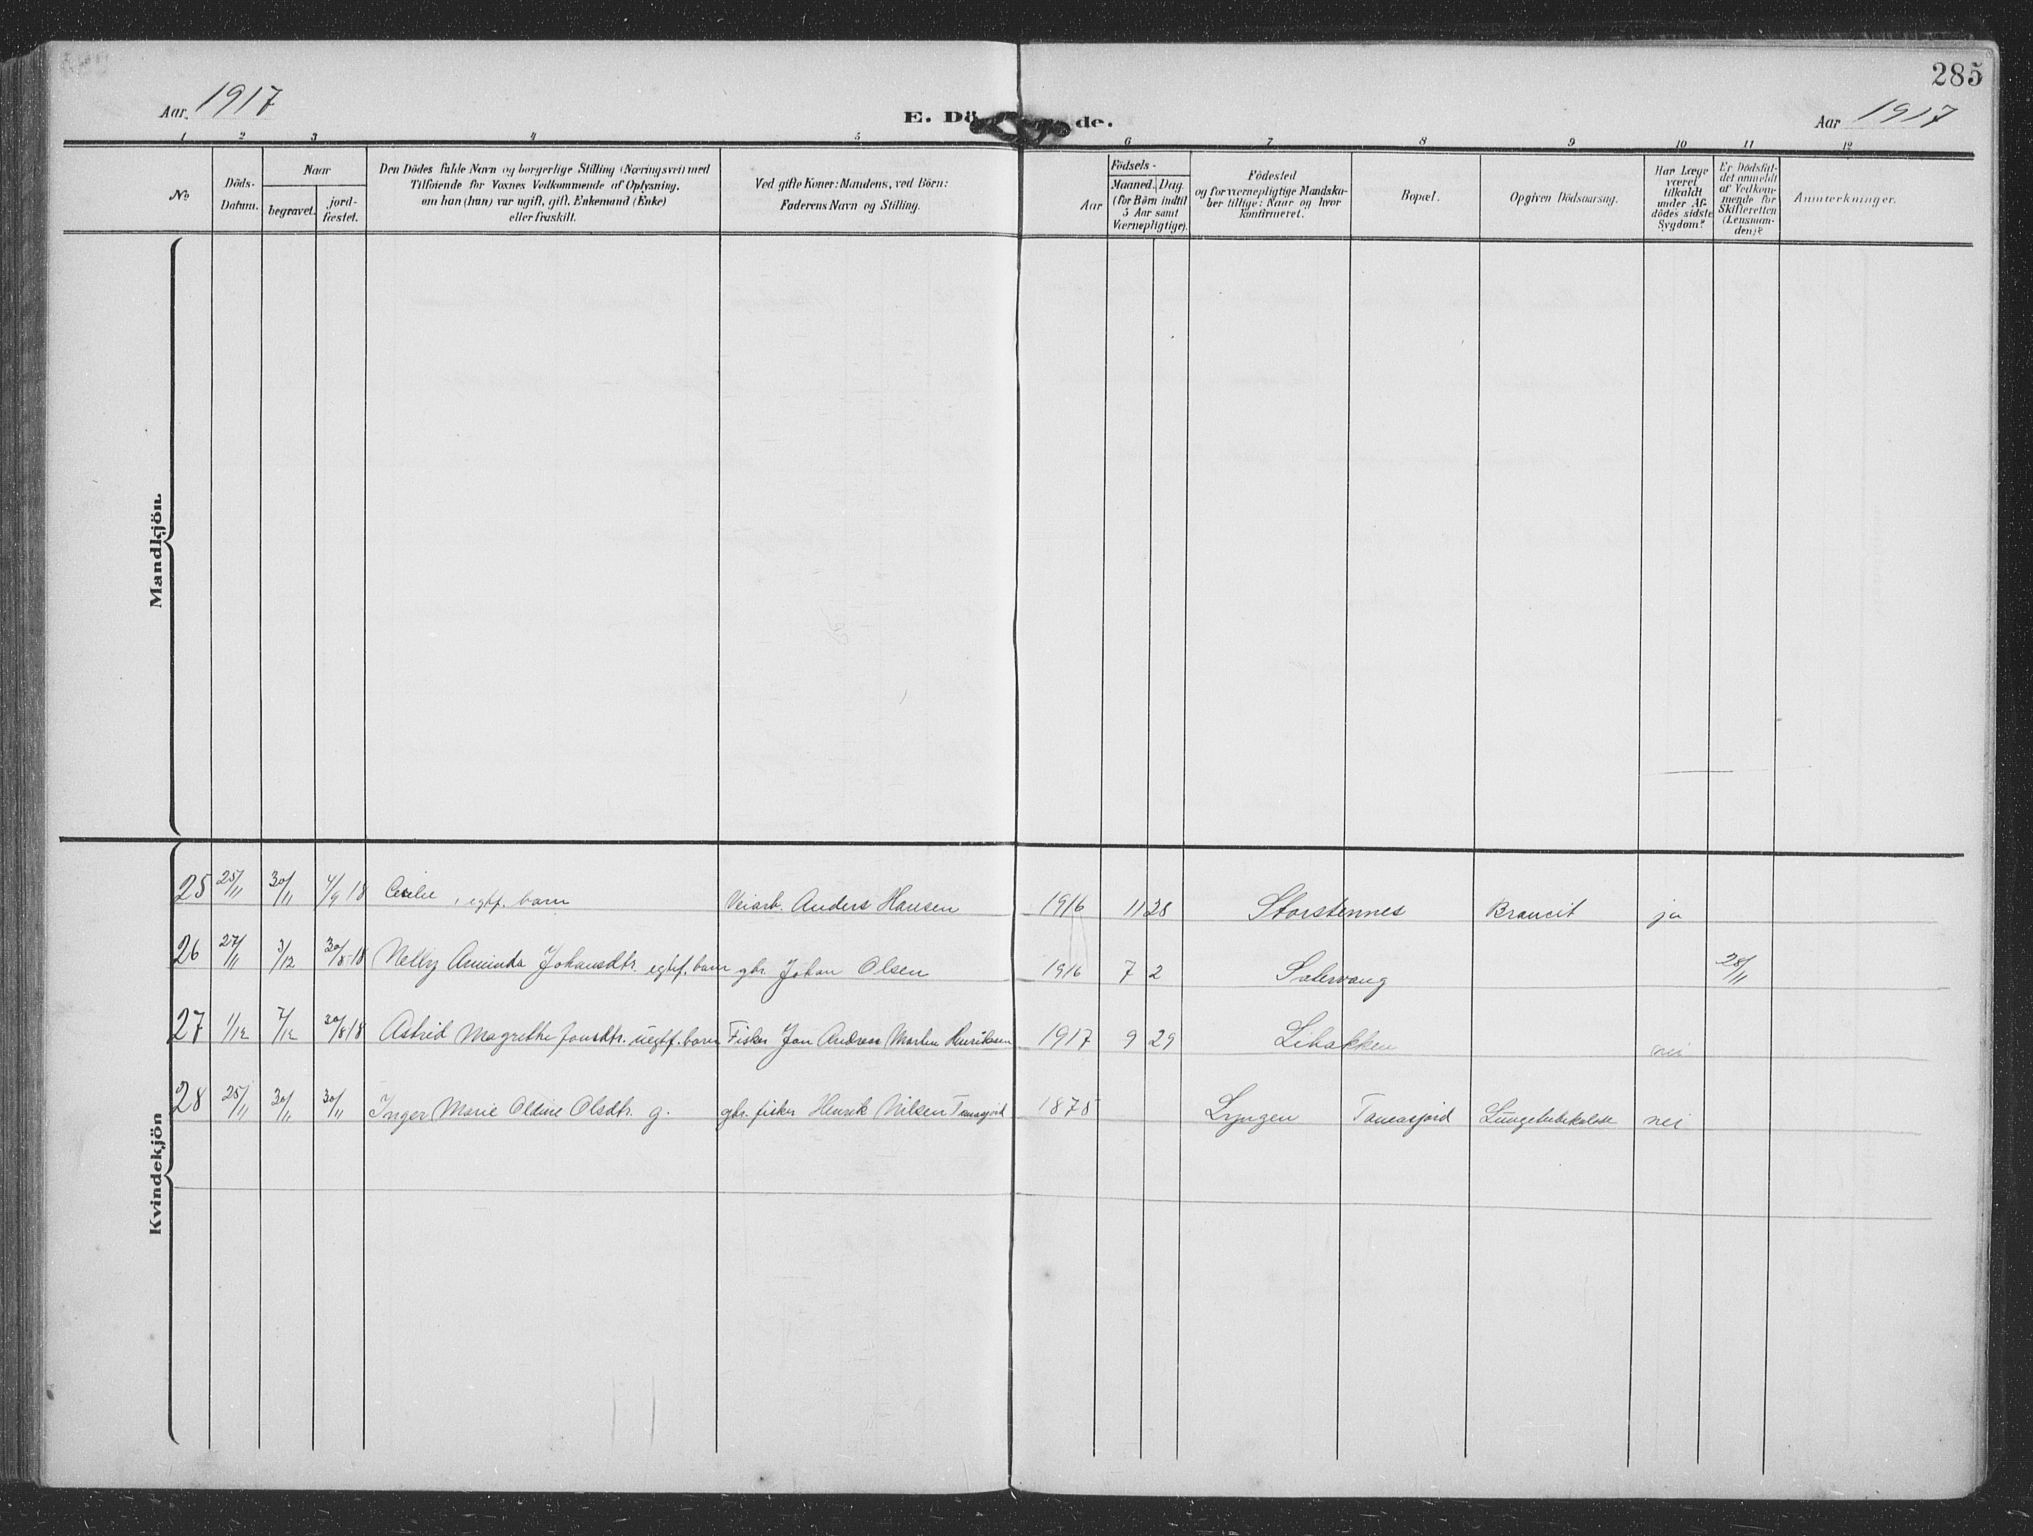 285
Aar 1917
E. Dö de.
Aar 1917
1 2 3 4 5 6 7 8 9 10 11 12
No
Döds-Datum.
Naar
begravet.
jord-fæstet.
Den Dödes fulde Navn og borgerlige Stilling (Næringsvei) med
Tilföiende för Voxnes Vedkommende af Oplysning,
om han (hun) var ugift, gift, Enkemand (Enke)
eller fraskilt.
Ved gifte Koner: Mandens, ved Börn:
Faderens Navn og Stilling.
Aar
Födsels-
Maaned. Dag.
(for Börn indtil
5 Aar samt
Værnepligtige).
Födested
og for værnepligtige Mandska-
ber tillige: Naar og hvor
konfirmeret.
Bopæl.
Opgiven Dödsaarsag.
Har Læge
været
tilkaldt
under Af-
dödes sidste
Sygdom?
Er Dödsfal-
det anmeldt
af Vedkom-
mende for
Skifteretten
(Lensman-
den)?
Anmærkninger.
Mandkjön.
Kvindekjön
25 25/11 30/11 4/9 18 Cecilie, egtf. barn Veiarb. Anders Hansen 1916 11 28 Storstennes Broncit ja
26 27/11 3/12 30/8 18 Nelly Aminda Johansdtr. egtef. barn gbr. Johan Olsen 1916 7 2 28/11
27 1/12 7/12 30/8 18 Astrid Magrethe Jonsdtr. uegtf. barn Fisker Jon Andreas Martin Henriksen 1917 9 29 Libakken nei
28 25/11 30/11 30/11 Inger Marie Oldine Olsdtr. g. gbr. fisker Henrik Nilsen 1875 Lyngen nei